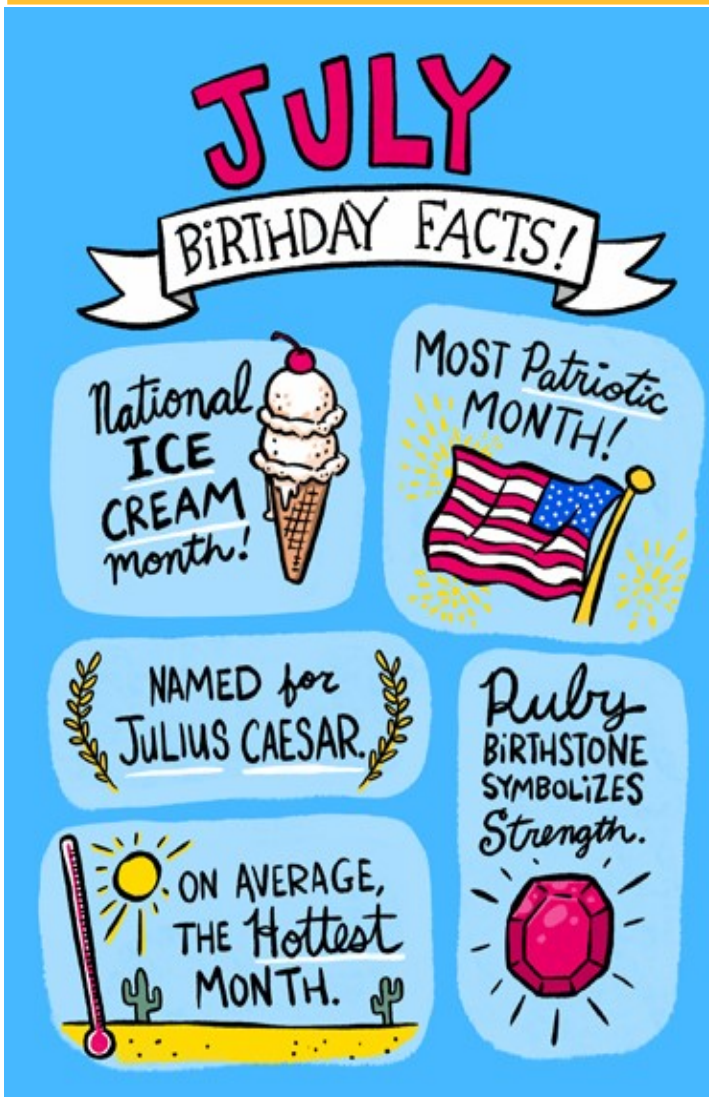 JULY
BiRTHDAY FACTS!
National
ICE
CREAM
month!
MOST Patriotic
MONTH!
NAMED for
JULIUS CAESAR.
Ruby
BiRTHSTONE
SYMBOLiZES
Strength.
ON AVERAGE,
THE Hottest
MONTH.